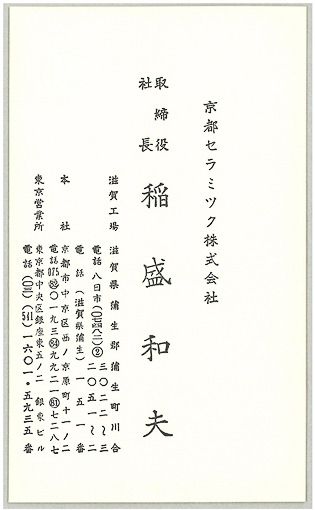 京都セラミック株式会社
取締役
社長
稲盛和夫
滋賀工場 滋賀県蒲生郡蒲生町川合
電話 八日市(〇七四八二)② 三〇二二~三
二〇五一~二
電話(滋賀県蒲生)一五一番
本社 京都市中京区西ノ京原町十一ノ二
東京営業所 東京都中央区銀座東五ノ二 銀東ビル
電話(〇三)(541)一六〇一・五九三五番